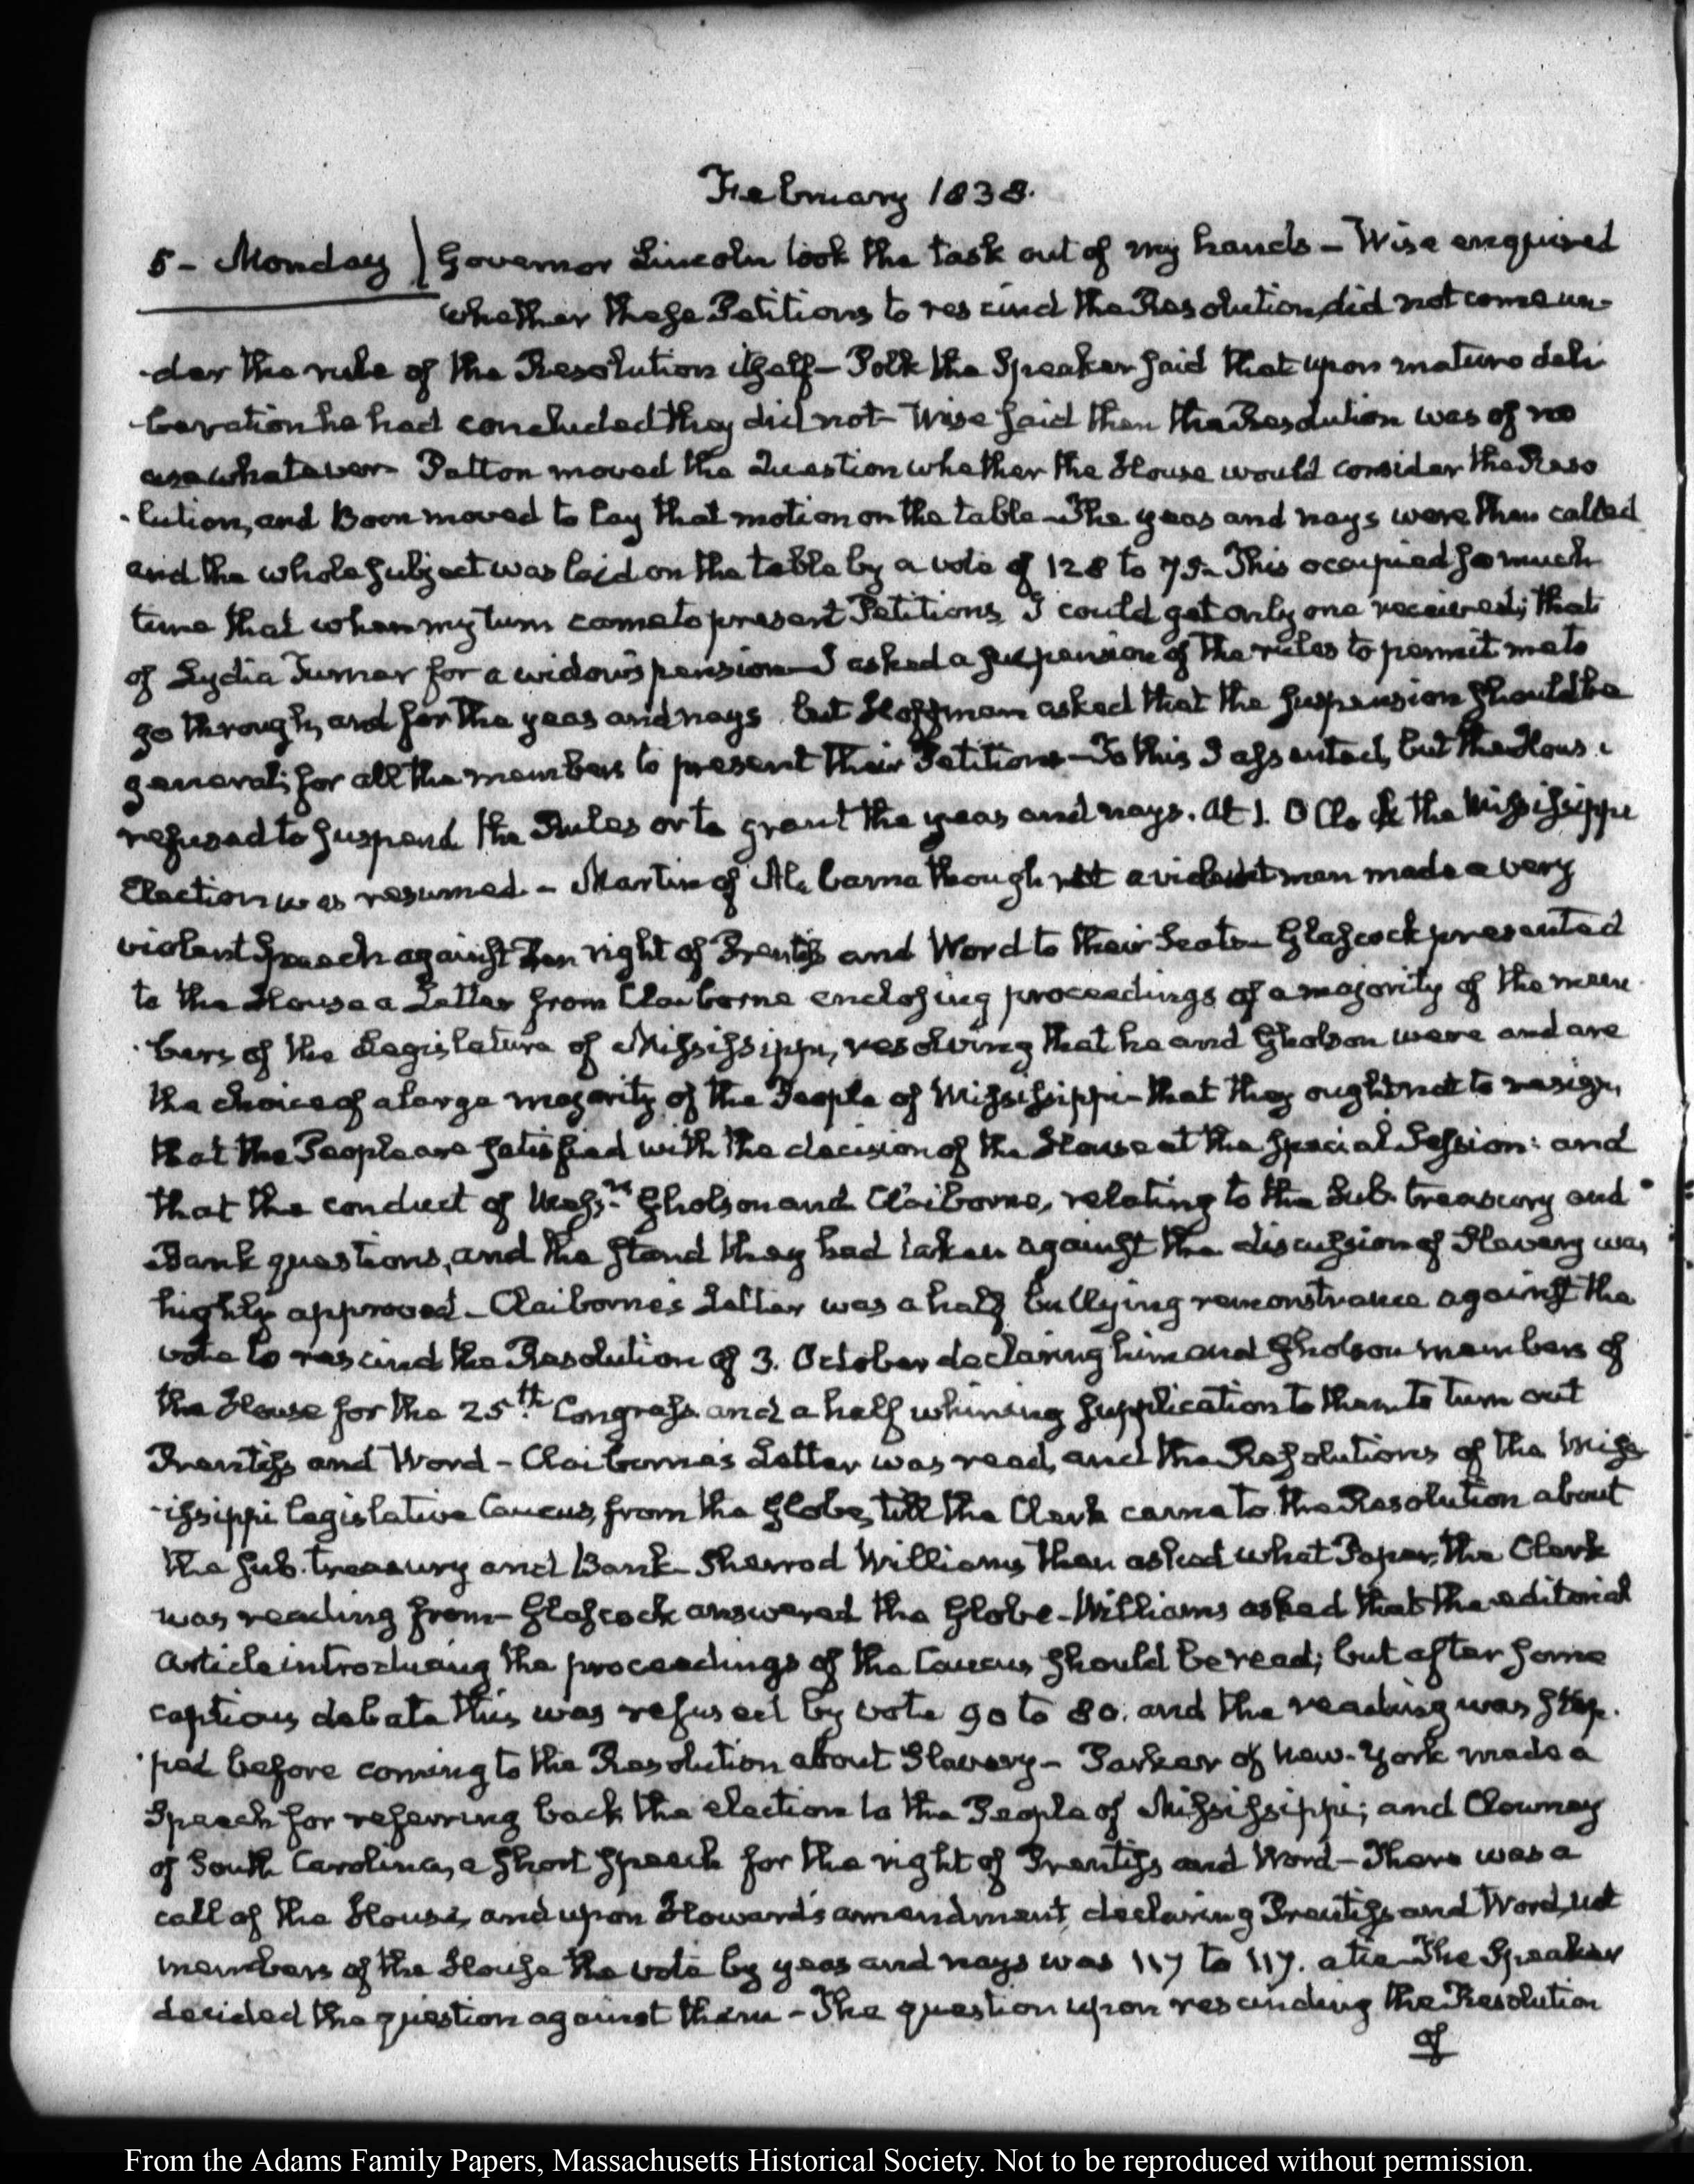 February 1838.
5 - Monday } Governor Lincoln took the task out of my hands - Wise enquired
whether these Petitions to rescind the Resolution, did not come un-
-der the rule of the Resolution itself - Polk the Speaker said that upon mature deli
-beration he had concluded they did not - Wise said then the Resolution was of no
use whatever - Patton moved the Question whether the House would consider the Reso
-lution, and Boon moved to lay that motion on the table - The yeas and nays were then called
and the whole subject was laid on the table by a vote of 128 to 75 - This occupied so much
time that when my turn came to present Petitions, I could get only one received; that
of Lydia Turner for a widow's pension - I asked a suspension of the rules to permit me to
go through, and for the yeas and nays. but Hoffman asked that the suspension should be
general; for all the members to present their Petitions - To this I assented, but the House
refused to suspend the Rules or to grant the yeas and nays. At 1. O Clock the Mississippi
Election was resumed - Martin of Alabama though not a violent man made a very
violent Speech against the right of Prentiss and Word to their Seats - Glascock presented
to the House a Letter from Claiborne enclosing proceedings of a majority of the mem
-bers of the Legislature of Mississippi, resolving that he and Gholson were and are
the choice of a large majority of the People of Mississippi - that they ought not to resign,
that the People are satisfied with the decision of the House at the special Session: and
that the conduct of Mess.rs Gholson and Claiborne, relating to the Sub. treasury and
Bank questions, and the stand they had taken against the discussion of Slavery was
highly approved - Claiborne's Letter was a half bullying remonstrance against the
vote to rescind the Resolution of 3. October declaring him and Gholson members of
the House for the 25.th Congress and a half whining supplication to them to turn out
Prentiss and Word - Claiborne's Letter was read, and the Resolutions of the Miss
-issippi legislative Caucus, from the Globe, till the Clerk came to the Resolution about
the sub. treasury and Bank - Sherrod Williams then asked what Paper, the Clerk
was reading from - Glascock answered the Globe - Williams asked that the editorial
article introducing the proceedings of the Caucus should be read; but after some
captious debate this was refused by vote 90 to 80. and the reading was stop.
-ped before coming to the Resolution about Slavery - Parker of New-York made a
Speech for referring back the election to the People of Mississippi; and Clowney
of South Carolina, a short speech for the right of Prentiss and Word - There was a
call of the House, and upon Howard's amendment, declaring Prentiss and Word, not
members of the House the vote by yeas and nays was 117 to 117. a tie - The Speaker
decided the question against them - The question upon rescinding the Resolution
of
From the Adams Family Papers, Massachusetts Historical Society. Not to be reproduced without permission.